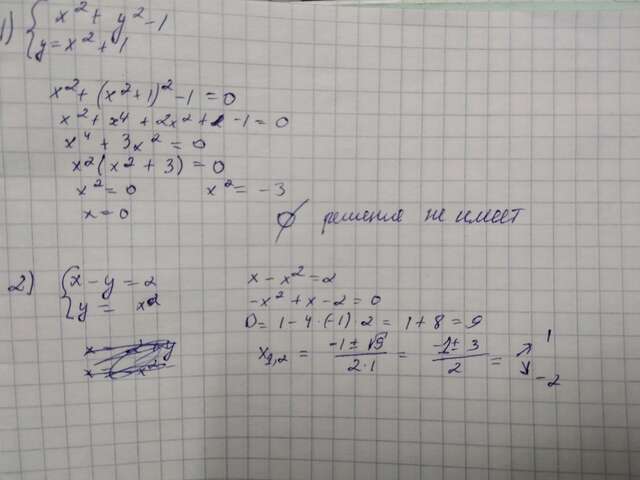 1) { x² + y² - 1
y = x² + 1
x² + (x² + 1)² - 1 = 0
x² + x⁴ + 2x² + 1 - 1 = 0
x⁴ + 3x² = 0
x² (x² + 3) = 0
x² = 0 x² = -3
x = 0 ∅ решения не имеет
2) { x - y = 2
y = x²
x - x² = 2
-x² + x - 2 = 0
D = 1 - 4 · (-1) 2 = 1 + 8 = 9
x₁,₂ = (-1 ± √9) / (2 · 1) = (-1 ± 3) / 2 = 1
-2